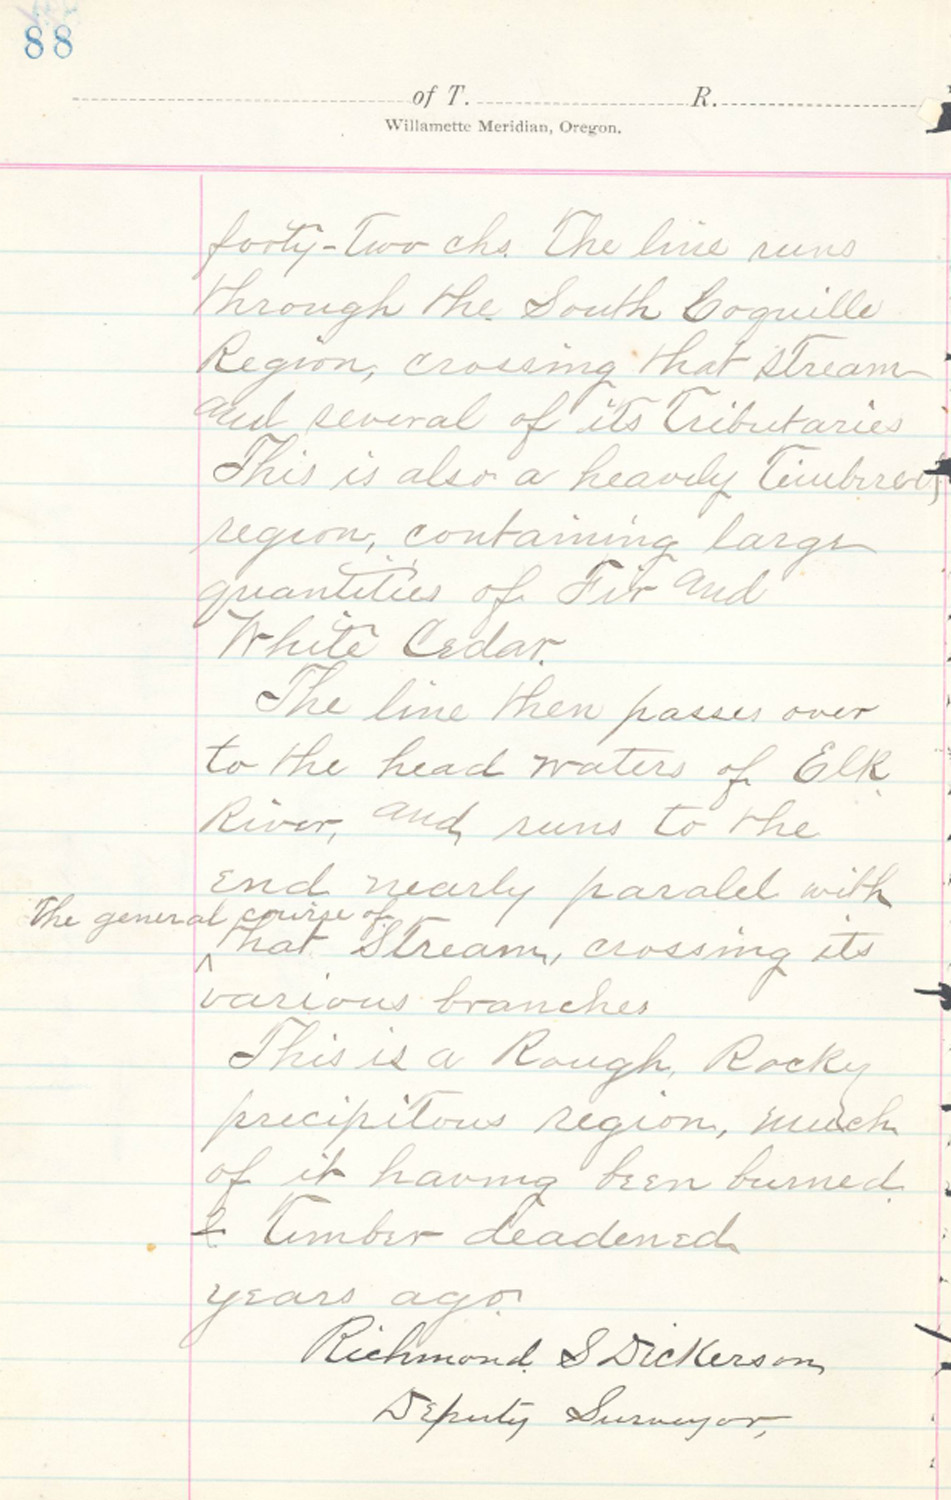 88
of T. R.
Willamette Meridian, Oregon.
forty-two chs. The line runs
through the South Coquille
Region, crossing that stream
and several of its Tributaries
This is also a heavily Timbered
region, containing large
quantities of Fir and
White Cedar.
The line then passes over
to the head waters of Elk
River, and runs to the
end nearly paralel with
the general course of
that Stream, crossing its
various branches
This is a Rough, Rocky
precipitous region, much
of it having been burned
& Timber deadened
years ago.
Richmond S Dickerson,
Deputy Surveyor,